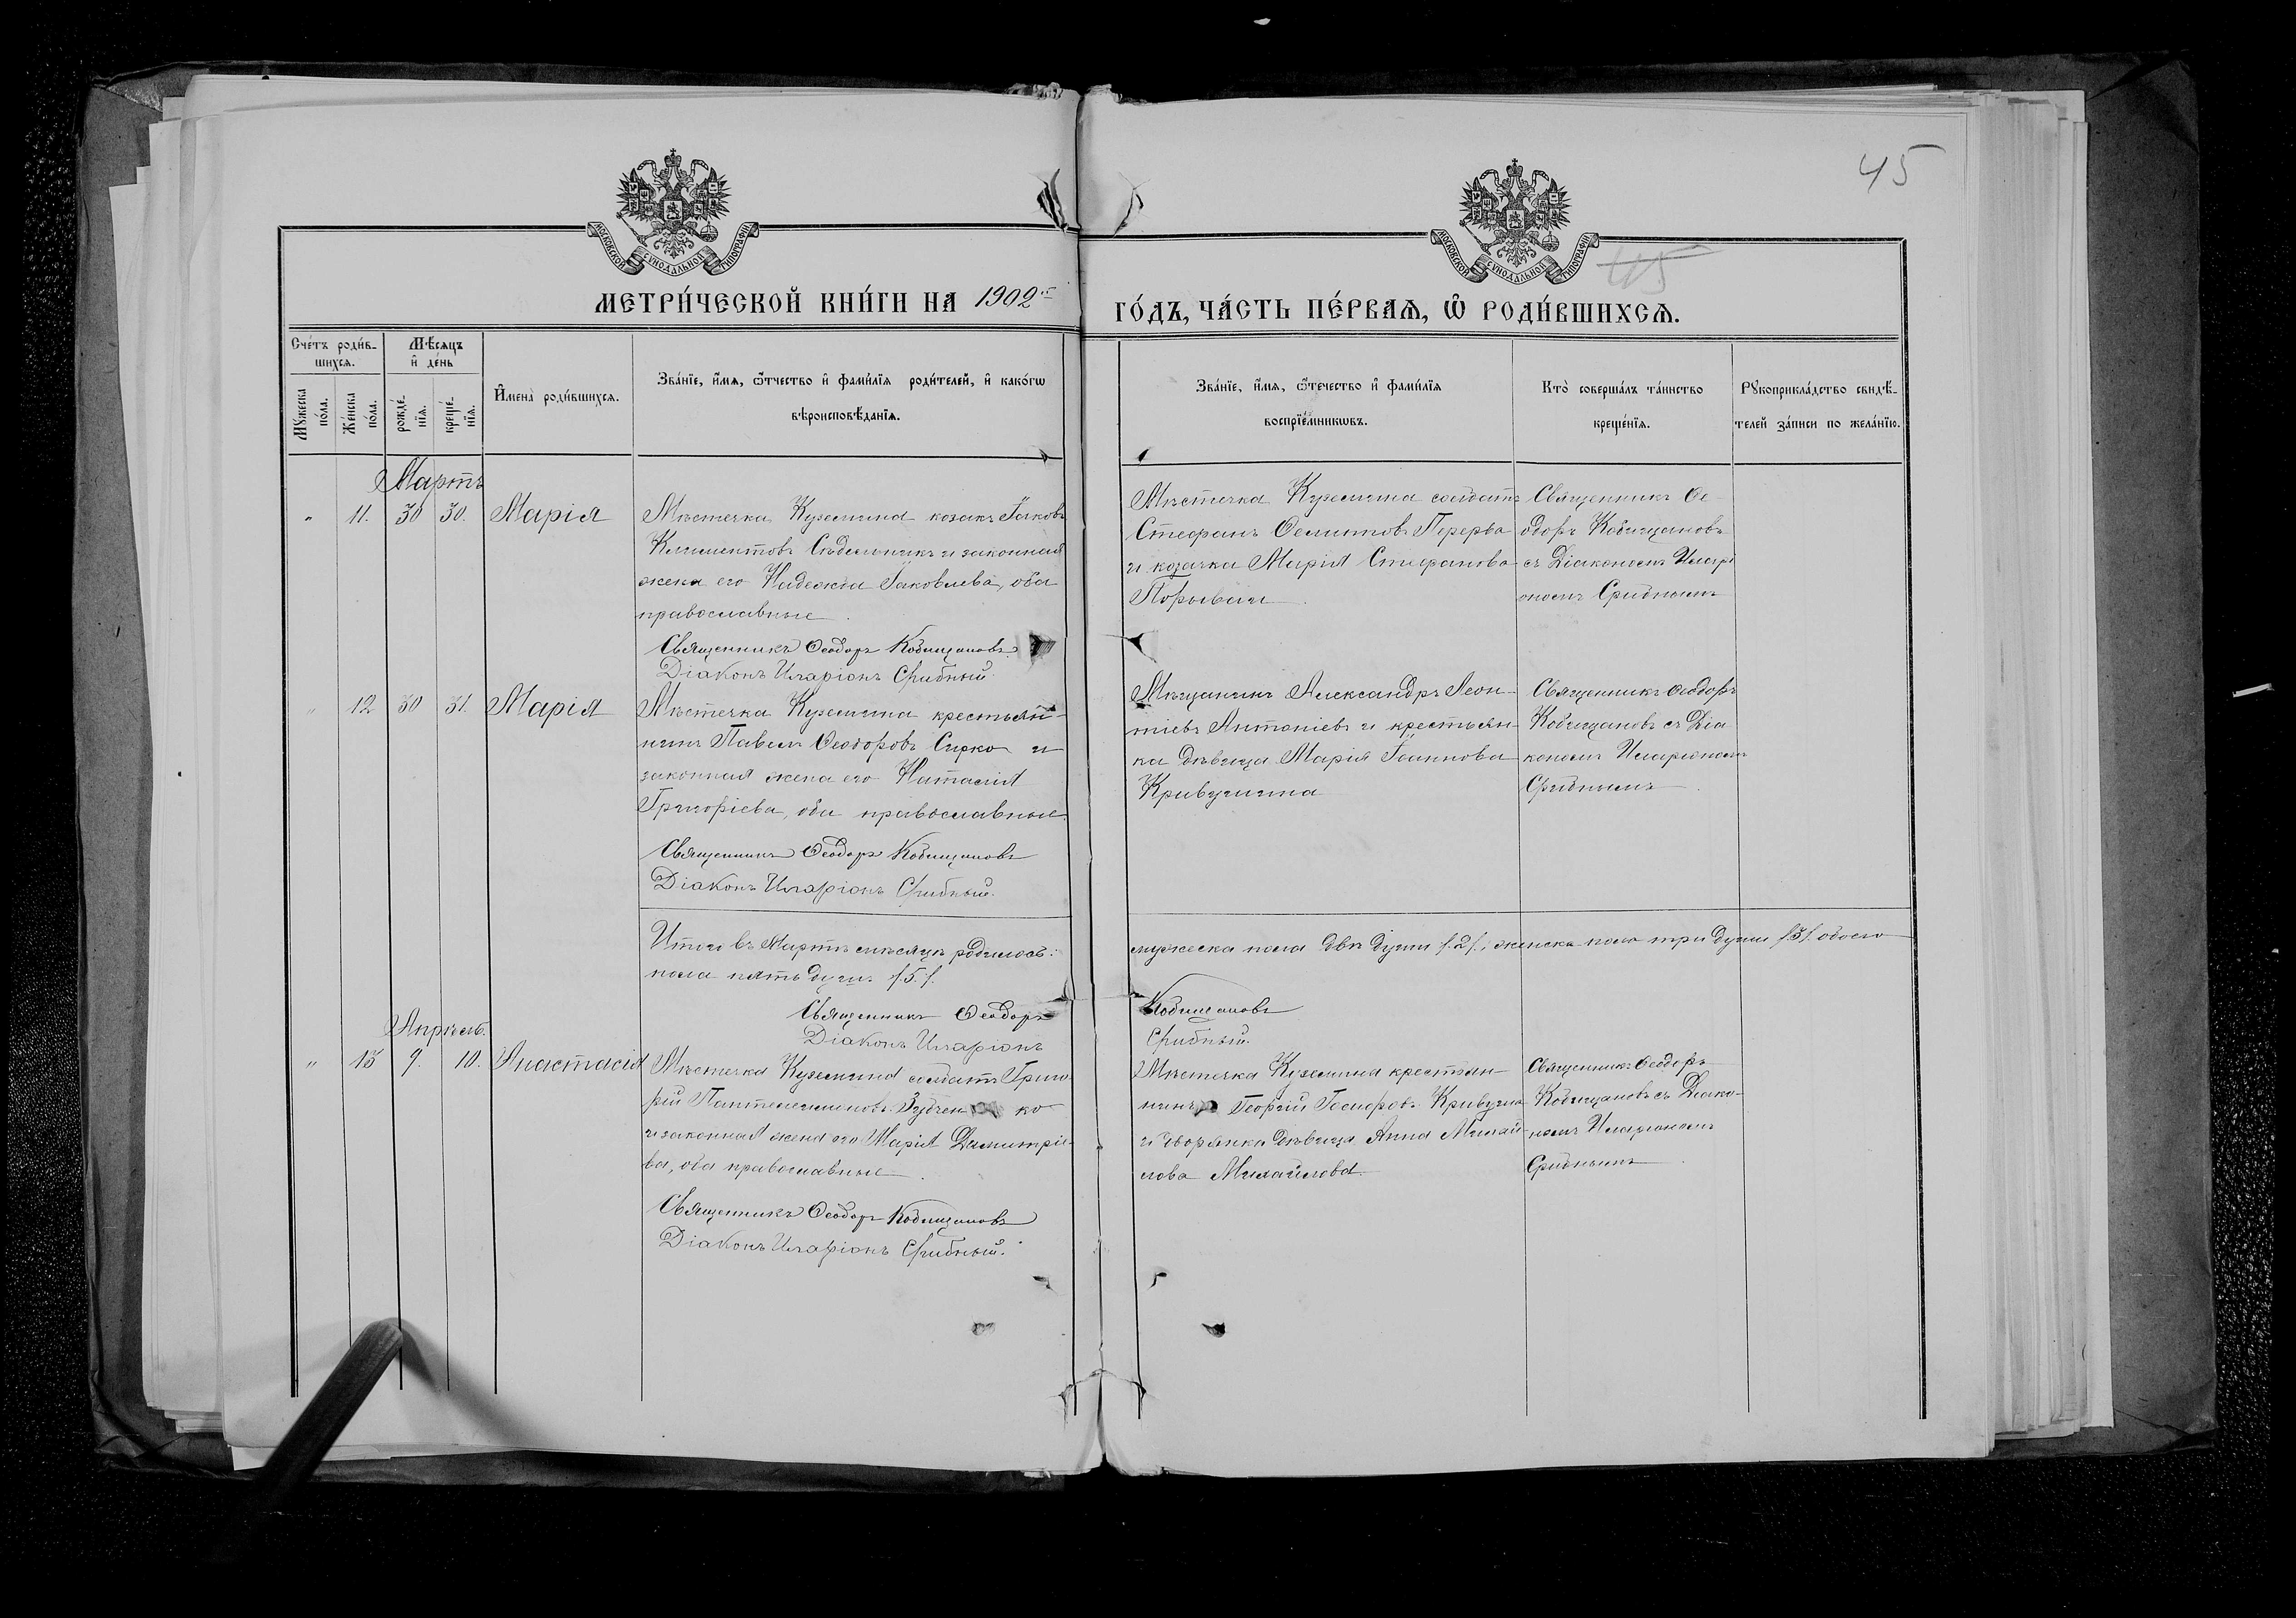 45
МОСКОВСКОЙ СУНОДАЛЬНОЙ ТИПОГРАФІИ
МОСКОВСКОЙ СУНОДАЛЬНОЙ ТИПОГРАФІИ
45
МЕТРИ́ЧЕСКОЙ КНИ́ГИ НА 1902
ГО́ДЪ, ЧА́СТЬ ПЕ́РВАѦ, Ѡ РОДИ́ВШИХСѦ.
Сче́тъ роди́в-
шихсѧ.
Мѣсѧцъ
и де́нь
Мꙋжеска
по́ла.
Же́нска
по́ла.
рожде́-
нїѧ.
креще́-
нїѧ.
Имена̀ роди́вшихсѧ.
Зва́нїе, и́мѧ, ѻ́тчество и фами́лїѧ роди́телей, и како́гѡ
вѣроисповѣ́данїѧ.
Зва́нїе, и́мѧ, ѻ́течество и фами́лїѧ
воспрїе́мникѡвъ.
Кто̀ соверша́лъ та́инство
креще́нїѧ.
Рꙋкоприкла́дство свидѣ́-
телей за́писи по жела́нїю.
Мартъ
" 11. 30 30. Марія
Мѣстечка Куземина козакъ Іаковъ
Климентовъ Сѣдельникъ и законная
жена его Надежда Іаковлева, оба
православные.
Священникъ Ѳеодоръ Кобищановъ
Діаконъ Иларіонъ Срибный.
Мѣстечка Куземина солдатъ
Стефанъ Перерва
и козачка Марія Стефанова
Священникъ Ѳе-
одоръ Кобищановъ
съ Діакономъ Илари
ономъ Срибнымъ
" 12 30 31. Марія
Мѣстечка Куземина крестья-
нинъ Павелъ Ѳеодоровъ Сирко и
законная жена его Наталія
Григоріева, оба православные.
Священникъ Ѳеодоръ Кобищановъ
Діаконъ Иларіонъ Срибный.
Мѣщанинъ Александръ Леон-
тіевъ Антоніевъ и крестьян-
ка дѣвица Марія Іоаннова
Кривущина
Священникъ Ѳеодоръ
Кобищановъ съ Діа
кономъ Иларіономъ
Срибнымъ.
Итого въ Мартѣ мѣсяцѣ родилось:
мужеска пола двѣ души /2/, женска пола три души /3/ обоего
пола пять душъ /5./.
Священникъ Ѳеодоръ
Кобищановъ
Діаконъ Иларіонъ
Срибный.
Апрѣль.
" 13 9. 10. Анастасія
Мѣстечка Куземина солдатъ Григо-
рій Пантелеимоновъ Зубчен ко
и законная жена его Марія Димитріе-
ва, оба православные.
Священникъ Ѳеодоръ Кобищановъ
Діаконъ Иларіонъ Срибный.
Мѣстечка Куземина крестьян-
нинъ Георгій
и дворянка дѣвица Анна Михай-
лова Михайлова.
Священникъ Ѳеодоръ
Кобищановъ съ Діако-
номъ Иларіономъ
Срибнымъ.